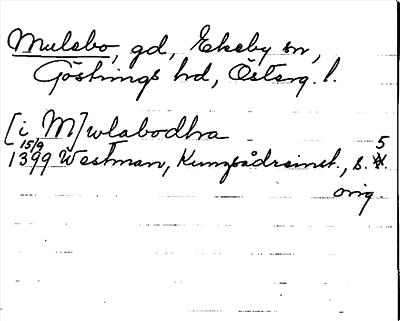 Mulebo, gd, Ekeby sn,
Göstrings hd, Österg. l.
[i M]wlabodhra
15/9
1399 Westman, Kungsådreinst., s. 5
orig.